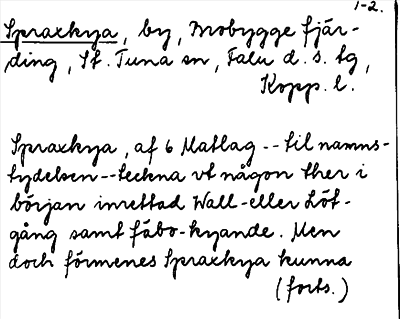 1-2.
Spraxkya, by, Brobygge fjär-
ding, St. Tuna sn, Falu d. s. tg,
Kopp. l.
Spraxkya, af 6 Matlag -- til namns-
tydelsen -- teckna vt någon ther i
början inrettad Wall- eller Löt-
gång samt fäbo-kyande. Men
doch förmenes Spraxkya kunna
(forts.)